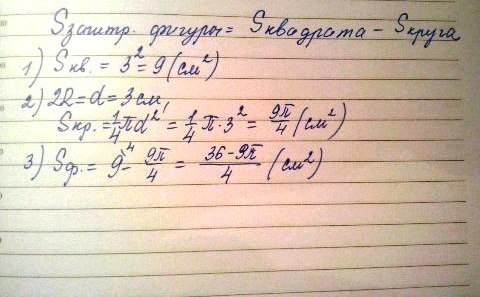 Sзаштр. фигуры = Sквадрата - Sкруга
1) Sкв. = 3² = 9 (см²)
2) 2R = d = 3см,
Sкр. = 1/4 πd² = 1/4 π · 3² = 9π/4 (см²)
3) Sф. = 9\4 - 9π/4 = 36-9π/4 (см²)